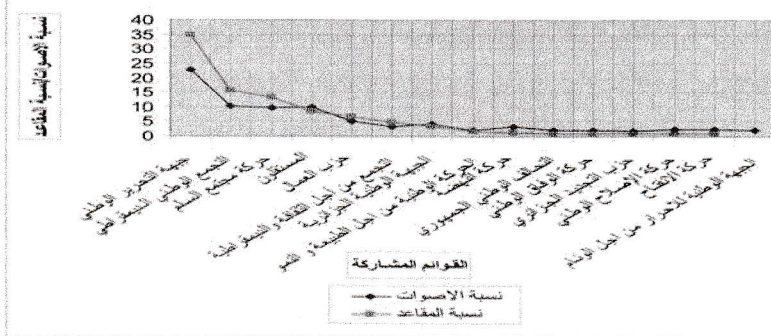 نسبة الاصوات/نسبة المقاعد
40
35
30
25
20
15
10
5
0
جبهة التحرير الوطني
التجمع الوطني الديمقراطي
حركة مجتمع السلم
المستقلون
حزب العمل
التجمع من أجل الثقافة و الديمقراطية
الجبهة الوطنية الجزائرية
الحركة الوطنية من أجل الطبيعة و النمو
حركة النهضة
التحالف الوطني الجمهوري
حركة الوفاق الوطني
حزب التجديد الجزائري
حركة الإصلاح الوطني
حركة الانفتاح
الجبهة الوطنية للأحرار من أجل الوئام
القوائم المشاركة
نسبة الاصوات
نسبة المقاعد